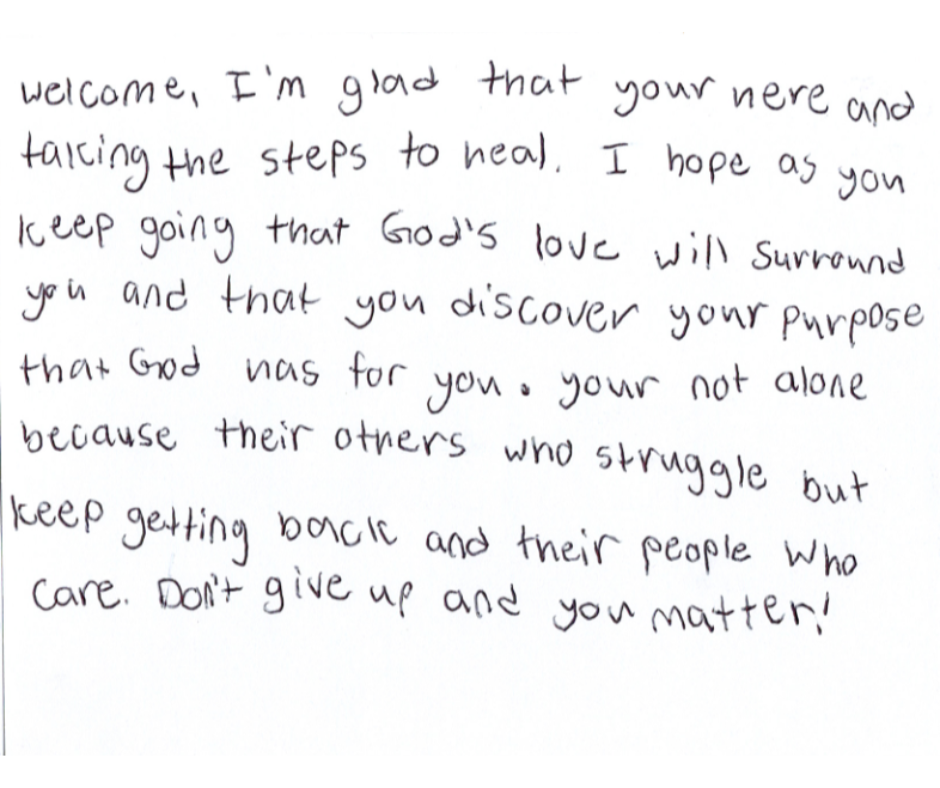 welcome, I'm glad that your here and
taking the steps to heal. I hope as you
keep going that God's love will surround
you and that you discover your purpose
that God has for you. your not alone
because their others who struggle but
keep getting back and their people who
care. Don't give up and you matter!